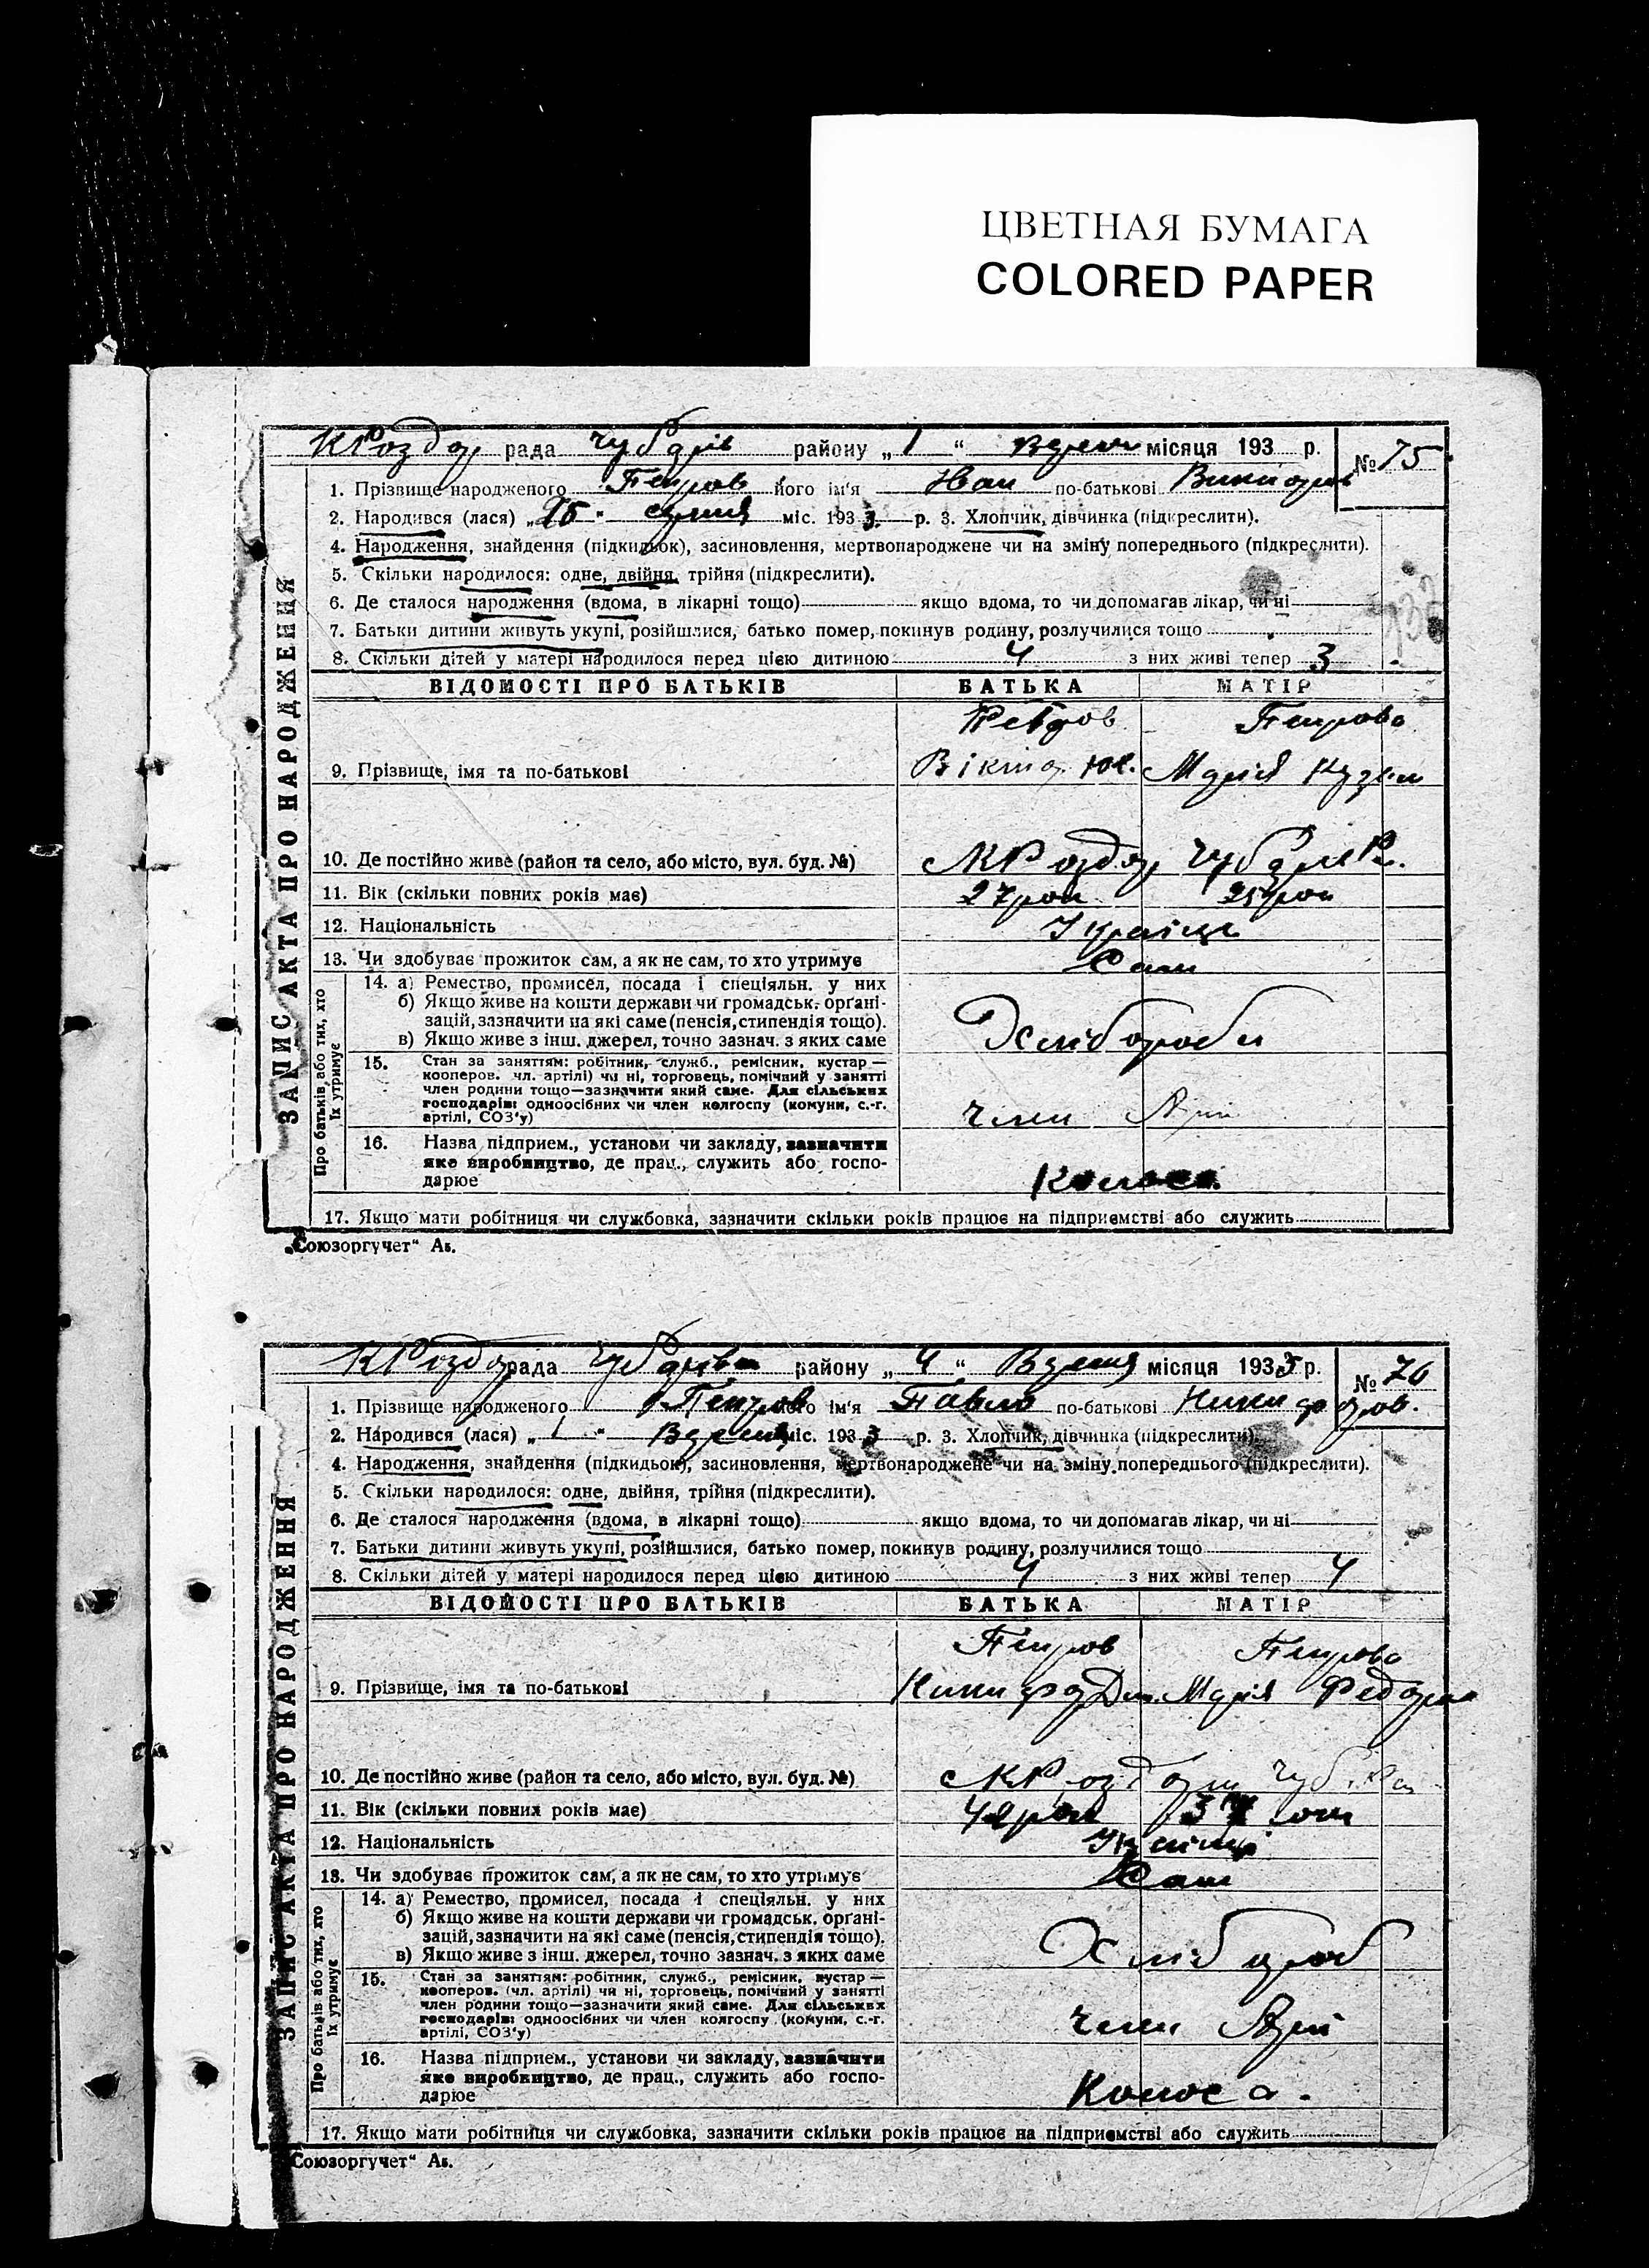 ЦВЕТНАЯ БУМАГА
COLORED PAPER
рада района „1“ місяця 193 р. № 75
1. Прізвище народженого Петров його ім'я Иван по-батькові
2. Народився (лася) „ “ міс. 1933 р. 3. Хлопчик, дівчинка (підкреслити).
4. Народження, знайдення (підкидьок), засиновлення, мертвонароджене чи на зміну попереднього (підкреслити).
5. Скільки народилося: одне, двійня, трійня (підкреслити).
6. Де сталося народження (вдома, в лікарні тощо) якщо вдома, то чи допомагав лікар, чи ні
7. Батьки дитини живуть укупі, розійшлися, батько помер, покинув родину, розлучилися тощо
8. Скільки дітей у матері народилося перед цією дитиною 4 з них живі тепер 3
ВІДОМОСТІ ПРО БАТЬКІВ БАТЬКА МАТІР
Петров Петрова
9. Прізвище, імя та по-батькові Віктор Юх. Марія Кузьм
10. Де постійно живе (район та село, або місто, вул. буд. №)
11. Вік (скільки повних років має) 27 рок 25 рок
12. Національність Українц
13. Чи здобуває прожиток сам, а як не сам, то хто утримує Сам
14. а) Ремество, промисел, посада і спеціяльн. у них
б) Якщо живе на кошти держави чи громадськ. орґані-
зацій, зазначити на які саме (пенсія, стипендія тощо).
в) Якщо живе з інш. джерел, точно зазнач. з яких саме Хлібороби
15. Стан за заняттям: робітник, служб., ремісник, кустар—
кооперов. чл. артілі) чи ні, торговець, помічний у занятті
член родини тощо—зазначити який саме. Для сільських
господарів: одноосібних чи член колгоспу (комуни, с.-г.
артілі, СОЗ'у) Член Арт
16. Назва підприєм., установи чи закладу, зазначити
яке виробництво, де прац., служить або госпо-
дарює Колоса
17. Якщо мати робітниця чи службовка, зазначити скільки років працює на підприємстві або служить
ЗАПИС АКТА ПРО НАРОДЖЕННЯ
Про батьків або тих, хто
їх утримує
„Союзоргучет“ Аз.
рада району „4“ місяця 1933 р. № 76
1. Прізвище народженого Петров його ім'я Павло по-батькові Никифоров.
2. Народився (лася) „1“ міс. 1933 р. 3. Хлопчик, дівчинка (підкреслити).
4. Народження, знайдення (підкидьок), засиновлення, мертвонароджене чи на зміну попереднього (підкреслити).
5. Скільки народилося: одне, двійня, трійня (підкреслити).
6. Де сталося народження (вдома, в лікарні тощо) якщо вдома, то чи допомагав лікар, чи ні
7. Батьки дитини живуть укупі, розійшлися, батько помер, покинув родину, розлучилися тощо
8. Скільки дітей у матері народилося перед цією дитиною 4 з них живі тепер 4
ВІДОМОСТІ ПРО БАТЬКІВ БАТЬКА МАТІР
Петров Петрова
9. Прізвище, імя та по-батькові Никифор Марія Федор
10. Де постійно живе (район та село, або місто, вул. буд. №)
11. Вік (скільки повних років має) 42 рок
12. Національність
13. Чи здобуває прожиток сам, а як не сам, то хто утримує Сам
14. а) Ремество, промисел, посада і спеціяльн. у них
б) Якщо живе на кошти держави чи громадськ. орґані-
зацій, зазначити на які саме (пенсія, стипендія тощо).
в) Якщо живе з інш. джерел, точно зазнач. з яких саме Хлібороб
15. Стан за заняттям: робітник, служб., ремісник, кустар—
кооперов. (чл. артілі) чи ні, торговець, помічний у занятті
член родини тощо—зазначити який саме. Для сільських
господарів: одноосібних чи член колгоспу (комуни, с.-г.
артілі, СОЗ'у) Член Арт
16. Назва підприєм., установи чи закладу, зазначити
яке виробництво, де прац., служить або госпо-
дарює Колоса.
17. Якщо мати робітниця чи службовка, зазначити скільки років працює на підприємстві або служить
ЗАПИС АКТА ПРО НАРОДЖЕННЯ
Про батьків або тих, хто
їх утримує
Союзоргучет“ Аз.